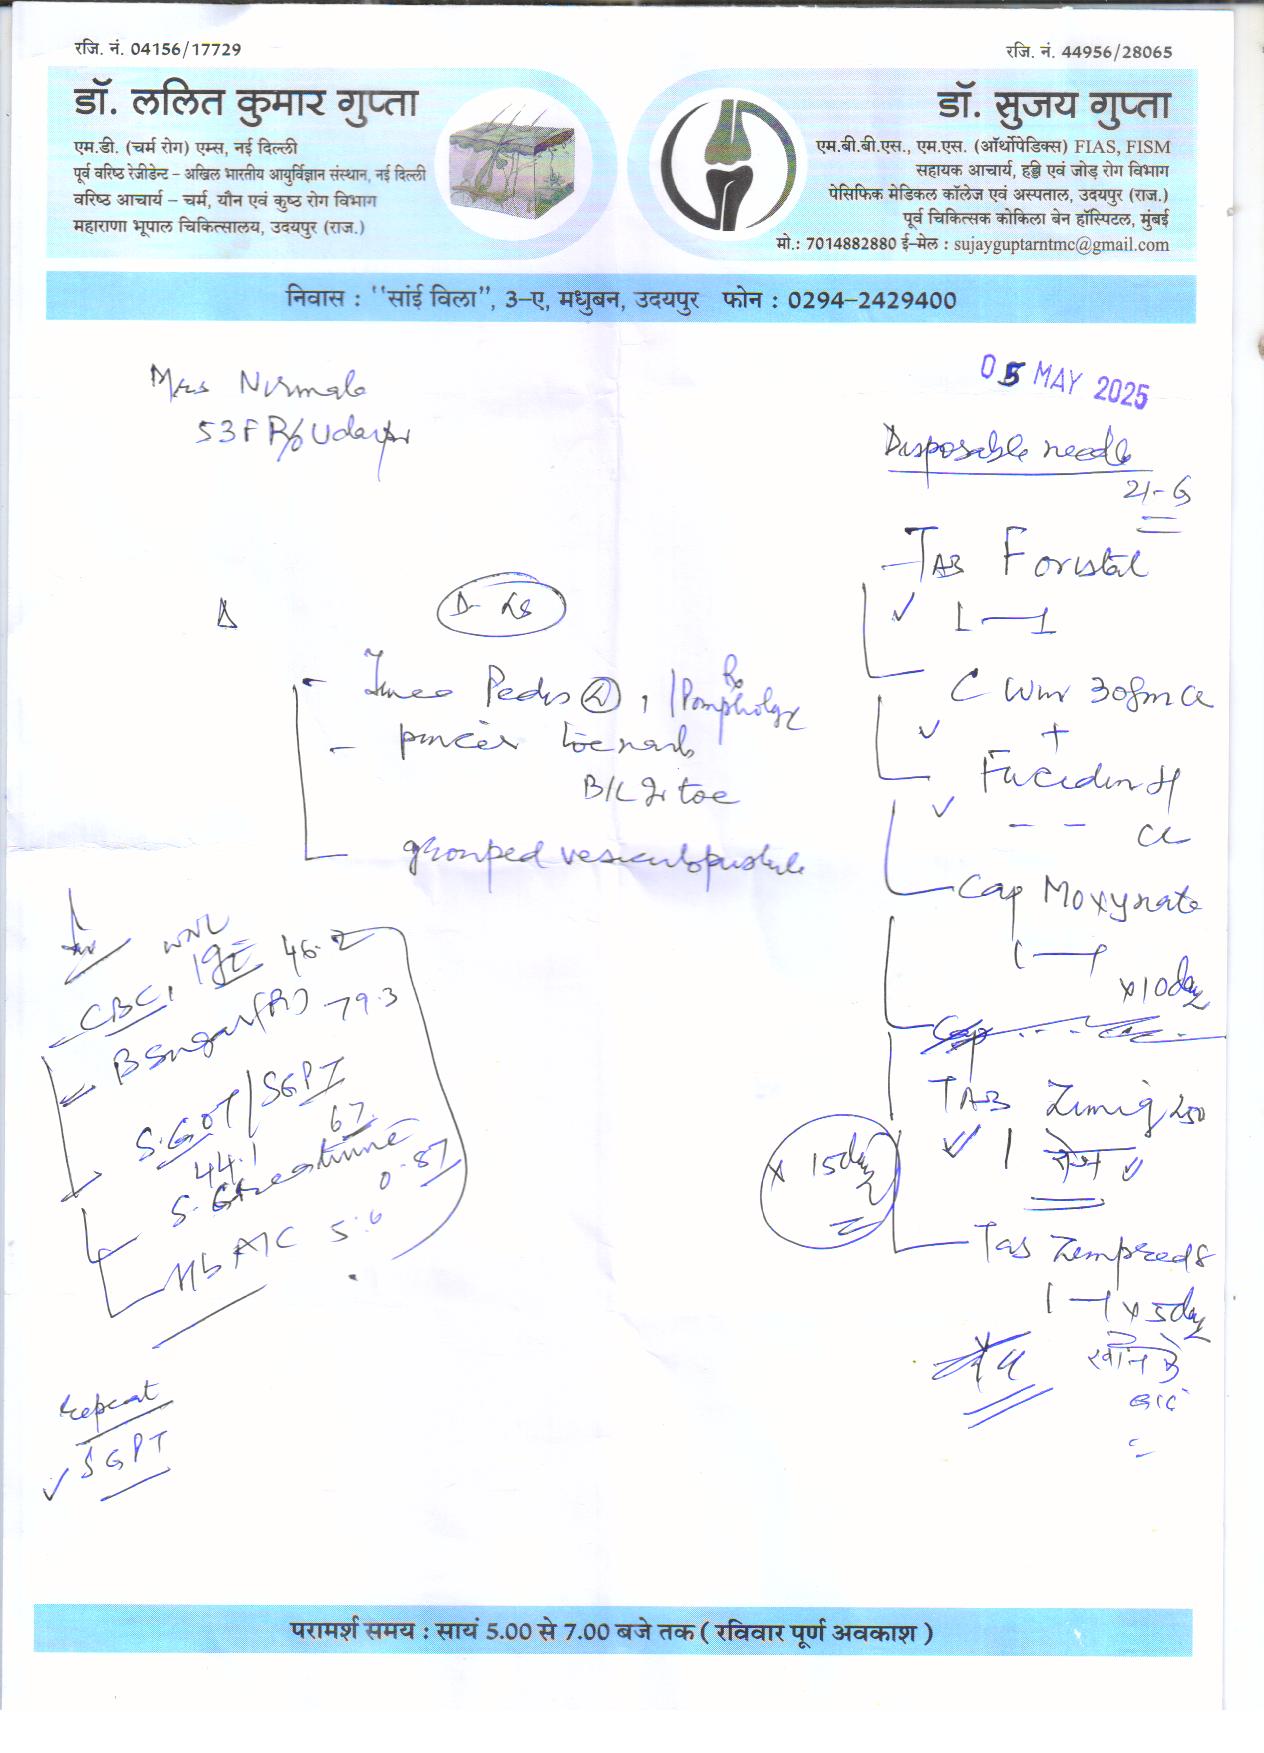 रजि. नं. 04156/17729
डॉ. ललित कुमार गुप्ता
एम.डी. (चर्म रोग) एम्स, नई दिल्ली
पूर्व वरिष्ठ रेजीडेन्ट – अखिल भारतीय आयुर्विज्ञान संस्थान, नई दिल्ली
वरिष्ठ आचार्य – चर्म, यौन एवं कुष्ठ रोग विभाग
महाराणा भूपाल चिकित्सालय, उदयपुर (राज.)
रजि. नं. 44956/28065
डॉ. सुजय गुप्ता
एम.बी.बी.एस., एम.एस. (ऑर्थोपेडिक्स) FIAS, FISM
सहायक आचार्य, हड्डी एवं जोड़ रोग विभाग
पेसिफिक मेडिकल कॉलेज एवं अस्पताल, उदयपुर (राज.)
पूर्व चिकित्सक कोकिला बेन हॉस्पिटल, मुंबई
मो.: 7014882880 ई-मेल : sujayguptarntmc@gmail.com
निवास : "सांई विला", 3-ए, मधुबन, उदयपुर फोन : 0294-2429400
05 MAY 2025
Mrs Nirmala
53 F R/o Udaipur
Δ
Tinea Pedis , Pompholyx
pincer toenails
B/L toe
grouped vesiculopustule
WNL
CBC, IgE 46.2
B Sugar (R) 79.3
S.GOT/SGPT
44.1 67
S. Creatinine
0.87
Hb A1C 5.6
repeat
SGPT
Disposable needle
21-G
TAB
1—1
+
Fucidin H
Cap Moxynate
1—1
x 10 day
TAB Zimig 250
1 रोज
x 15 day
Tab Zempred 8
1—1 x 5 day
खाने के
बाद
परामर्श समय : सायं 5.00 से 7.00 बजे तक ( रविवार पूर्ण अवकाश )